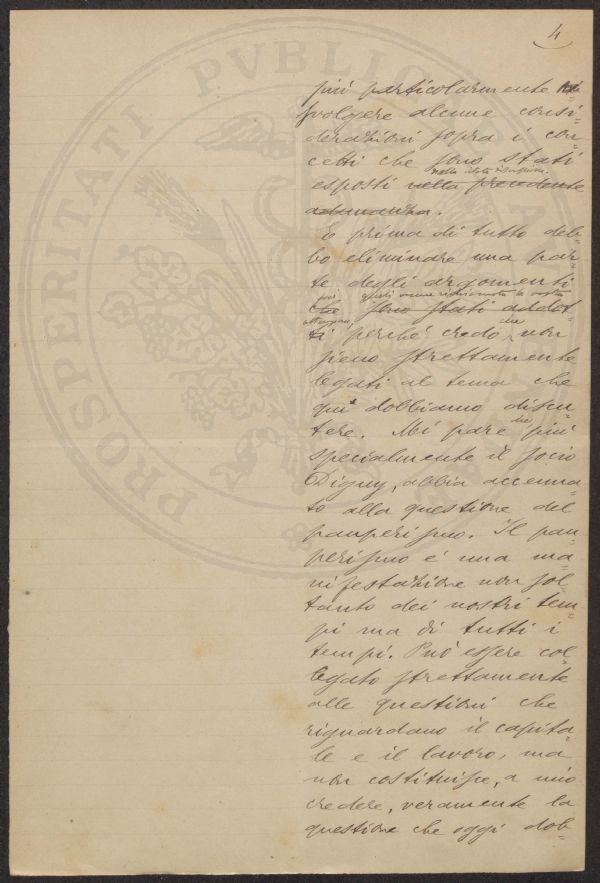 4
più particolarmente
svolgere alcune consi=
derazioni sopra i con=
cetti che sono stati
nella
esposti nella precedente
adunanza.
E prima di tutto deb=
bo eliminare una par=
te degli argomenti
che sono stati addot=
ti perché credo che non
sieno strettamente
legati al tema che
qui dobbiamo discu=
tere. Mi pare che più
specialmente il socio
Digny, abbia accenna=
to alla questione del
pauperismo. Il pau=
perismo è una ma=
nifestazione non sol=
tanto dei nostri tem=
pi ma di tutti i
tempi. Può essere col=
legato strettamente
alle questioni che
riguardano il capita=
le e il lavoro, ma
non costituisce, a mio
credere, veramente la
questione che oggi dob=
PROSPERITATI PVBLICAE AV